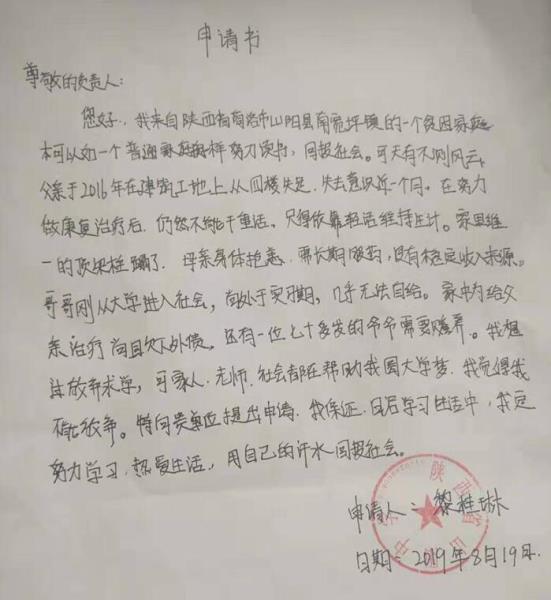 申请书
尊敬的负责人：
您好，我来自陕西省商洛市山阳县南宽坪镇的一个贫困家庭
本可以如一个普通家庭那样努力读书，回报社会。可天有不测风云，
父亲于2016年在建筑工地上从四楼失足，失去意识近一个月。在努力
做康复治疗后，仍然不能干重活，只得依靠轻活维持生计。家里唯
一的顶梁柱塌了，母亲身体抱恙，需长期服药，没有稳定收入来源。
哥哥刚从大学进入社会，尚处于实习期，几乎无法自给。家中为给父
亲治疗尚目欠下外债。还有一位七十多岁的爷爷需要赡养。我想
过放弃求学，可家人，老师，社会都在帮助我圆大学梦，我觉得我
不能放弃。特向贵单位提出申请，我保证，日后学习生活中，我定
努力学习，热爱生活，用自己的汗水回报社会。
申请人：黎桂琳
日期：2019年8月19日.
陕西省